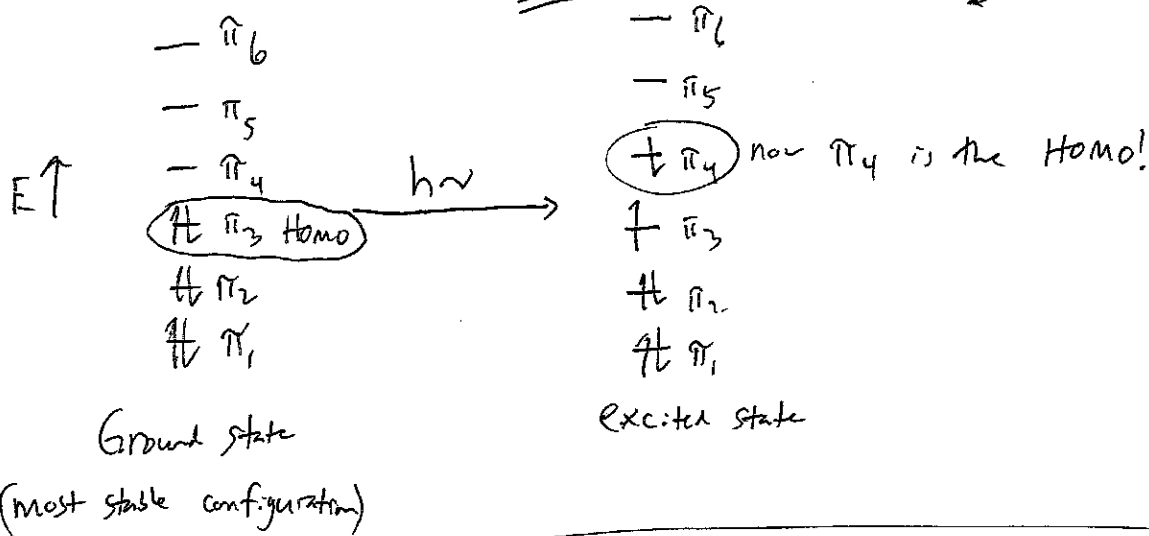 π6
π5
π4
E↑
π3 HOMO
π2
π1
Ground state
(most stable configuration)
hν
π6
π5
π4 now π4 is the HOMO!
π3
π2
π1
excited state